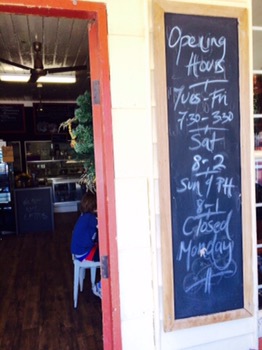 Opening
Hours
Tues - Fri
7.30 - 3.30
Sat
8 - 2
Sun & PH
8 - 1
Closed
Monday